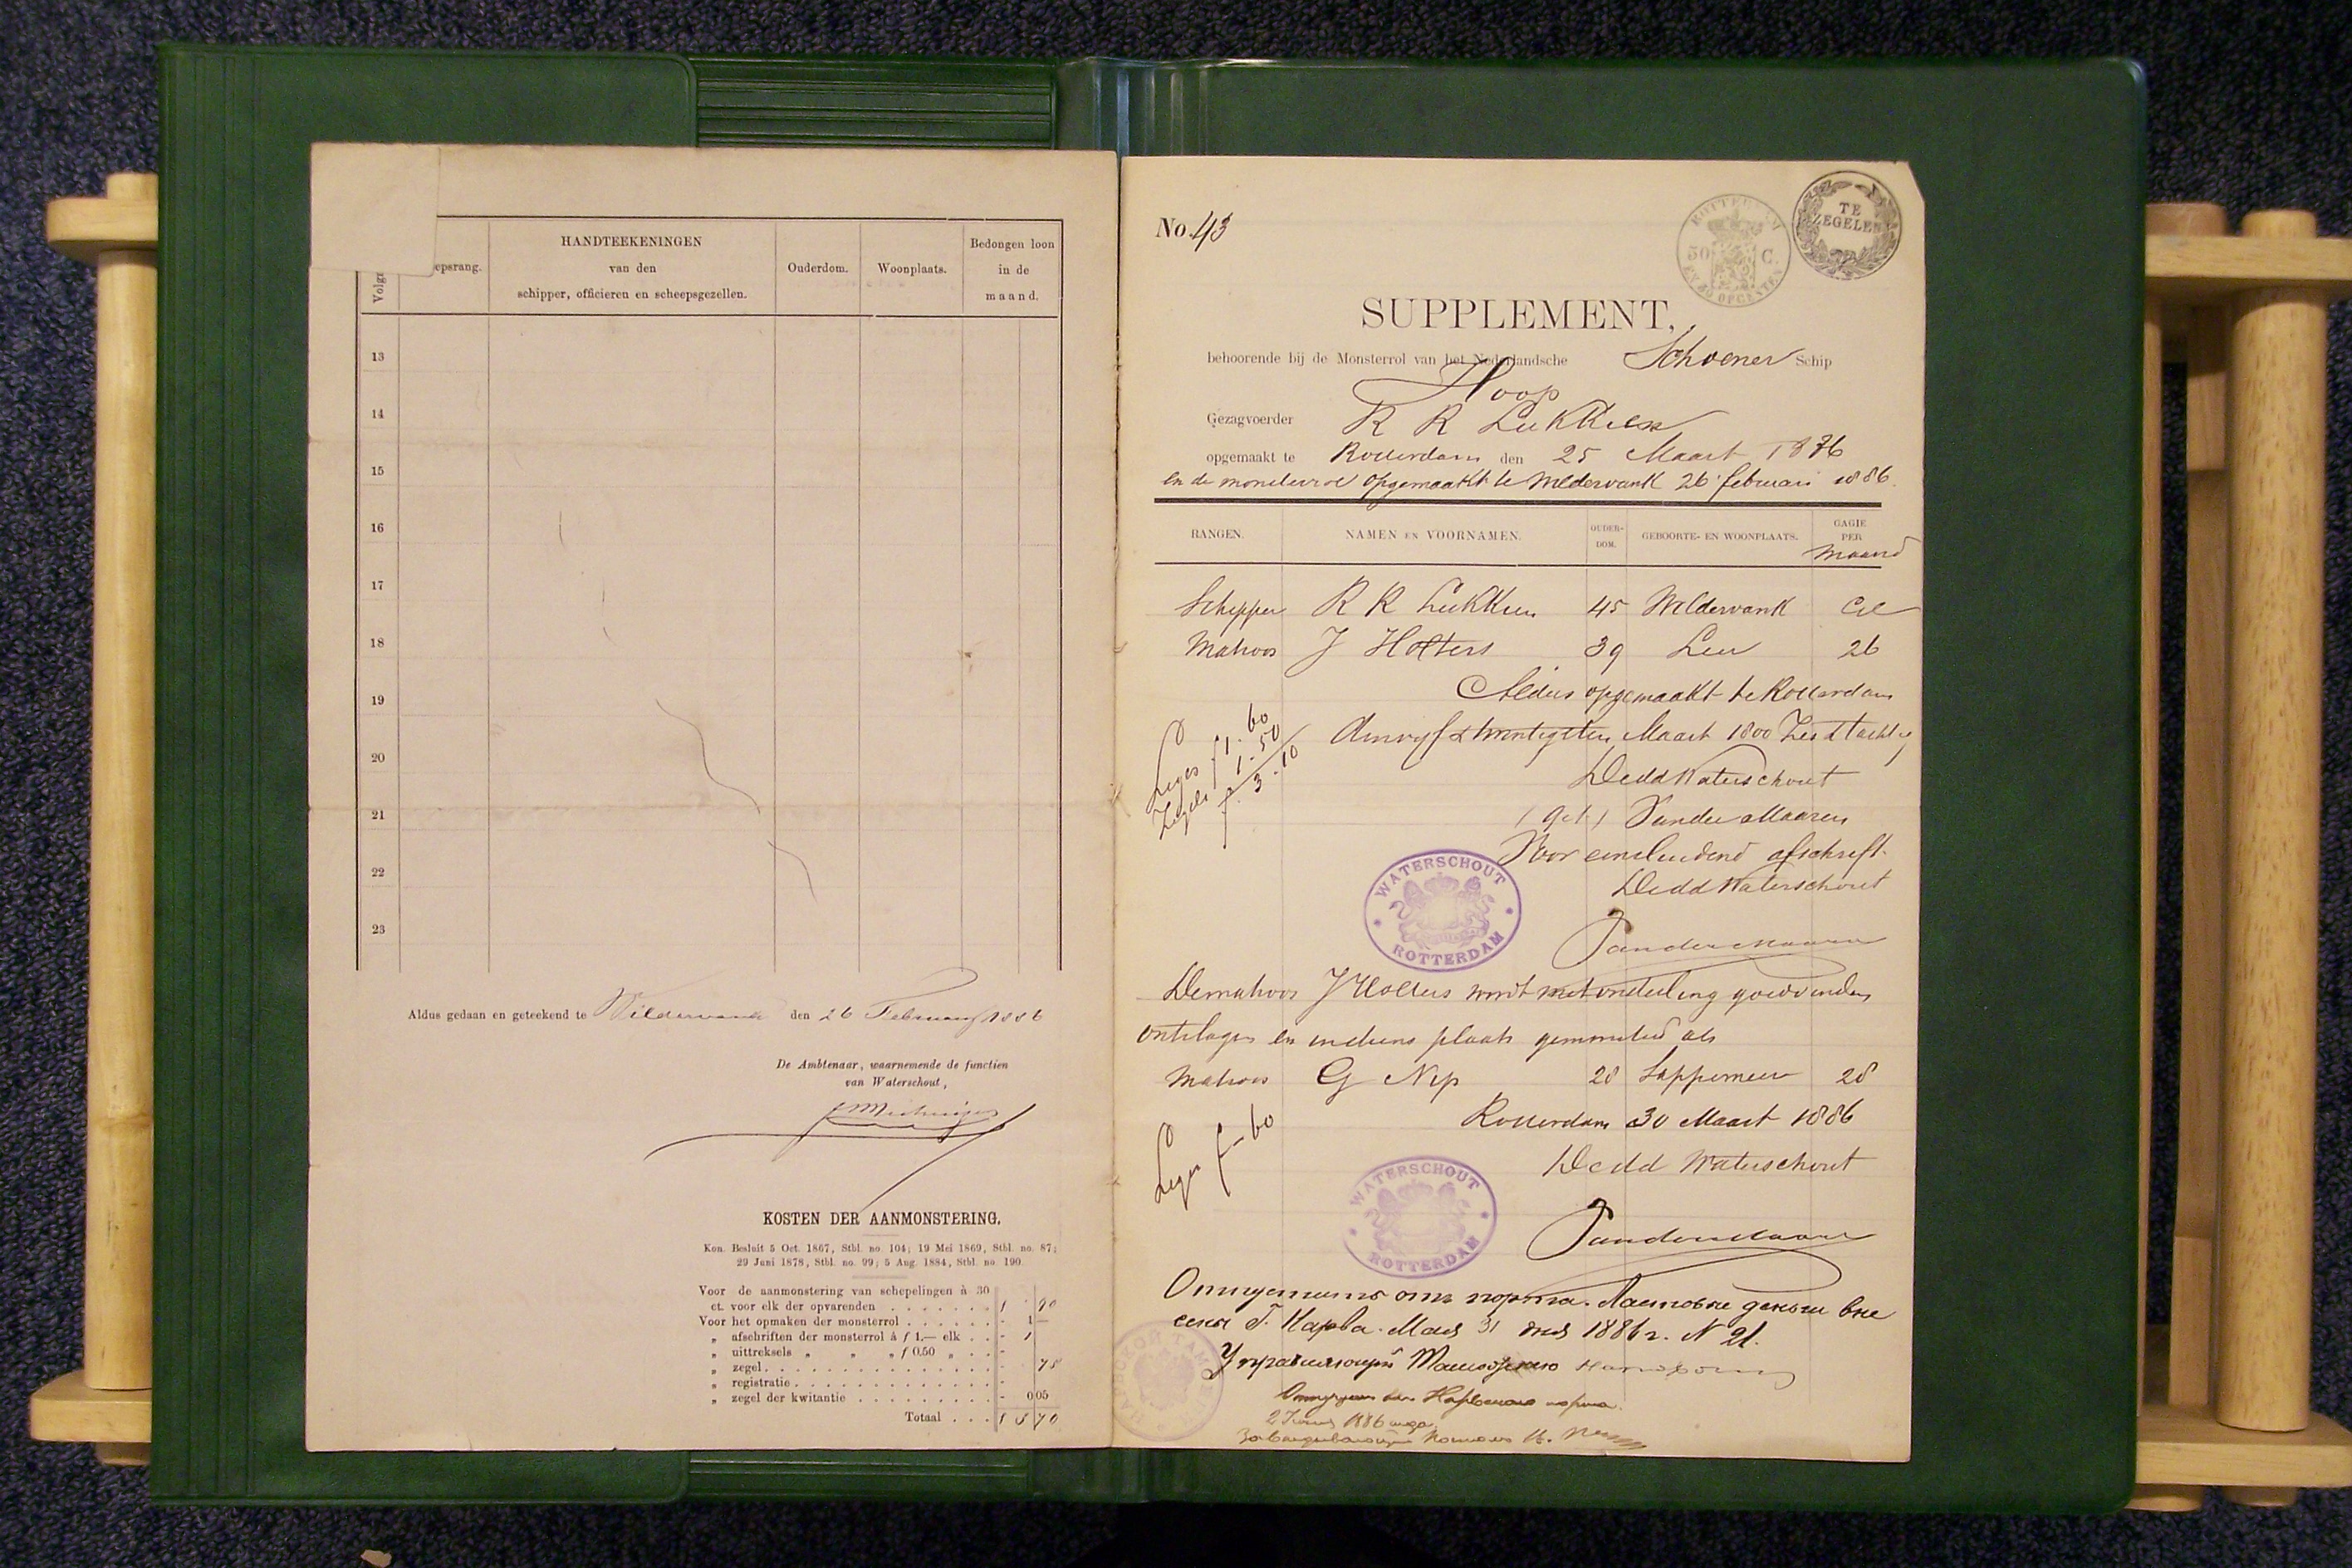 Volgn
epsrang.
HANDTEEKENINGEN
van den
schipper, officieren en scheepsgezellen.
Ouderdom.
Woonplaats.
Bedongen loon
in de
maand.
13
14
15
16
17
18
19
20
21
22
23
Aldus gedaan en geteekend te Wildervank den 26 Februarij 1886
De Ambtenaar, waarnemende de functien
van Waterschout,
KOSTEN DER AANMONSTERING.
Kon. Besluit 5 Oct. 1867, Stbl. no. 104; 19 Mei 1869, Stbl. no. 87;
29 Juni 1878, Stbl. no. 99; 5 Aug. 1884, Stbl. no. 190.
Voor de aanmonstering van schepelingen à 30
ct. voor elk der opvarenden f 90
Voor het opmaken der monsterrol - 1 —
„ afschriften der monsterrol à f 1.— elk - 1
„ uittreksels „ „ „ f 0.50 „ -
„ zegel - 75
„ registratie -
„ zegel der kwitantie - 0 05
Totaal f 3 70
No. 43
ROTTERDAM
50 C.
EN 30 OPCENTEN
TE
ZEGELEN
SUPPLEMENT,
behoorende bij de Monsterrol van het Nederlandsche Schoener Schip
Hoop
Gezagvoerder R R Lukkien
opgemaakt te Rotterdam den 25 Maart 1886
en de monsterrol opgemaakt te Wildervank 26 februari 1886.
RANGEN.
NAMEN EN VOORNAMEN.
OUDER-
DOM.
GEBOORTE- EN WOONPLAATS.
GAGIE
PER
Maand
Schipper R R Lukkien 45 Wildervank
Matroos J Holters 39 Leer 26
Aldus opgemaakt te Rotterdam
den vyf & twintigsten Maart 1800 Zes & tachtig
De dd Waterschout
(get) Vander Maaren
Leges f 1.60
Zegels 1.50
f 3.10
Voor eensluidend afschrift
De dd Waterschout
WATERSCHOUT
ROTTERDAM
Vandermaaren
De matroos J Holters wordt met onderling goedvinden
ontslagen en in diens plaats gemonsterd als
Matroos G Nip 28 Sappemeer 28
Rotterdam 30 Maart 1886
Leges f -60
De dd Waterschout
WATERSCHOUT
ROTTERDAM
Vandermaaren
от порта. Ластовые деньги вне
сены Г. Нарва. Мая 31 дня 1886 г. N 21.
Управляющий Таможнею
Нарвскаго порта.
2 Июня 1886 года.